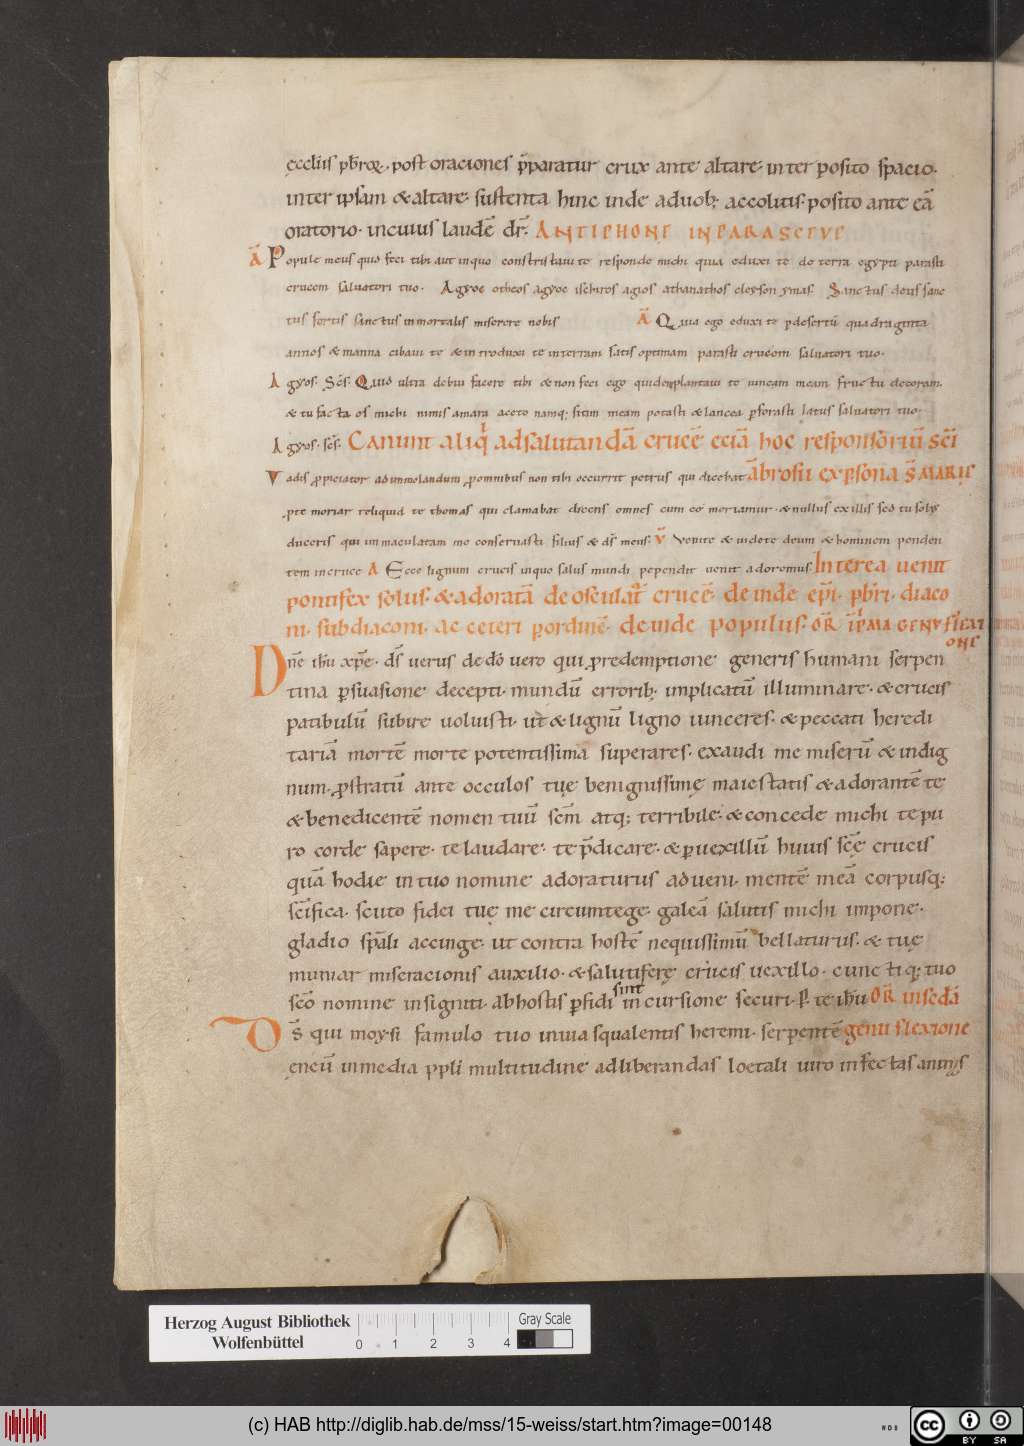 ęccłiis pbr̄ꝝ. post oraciones p̄paratur crux ante altare. inter posito spacio.
inter ipsam &altare. sustenta hinc inde aduob; accolitis. posito ante eā
oratorio. incuius laudē dr̄. ANTIPHONE IN PARASCEVE
Ā Popule meus quid feci tibi aut inquo constristaui te responde michi quia eduxi te de terra egypti parasti
crucem saluatori tuo. Agyos otheos agyos ischiros agios athanathos eleyson ymas. Sanctus deus sanc
tus fortis sanctus inmortalis miserere nobis Ā Quia ego eduxi te p desertū quadraginta
annos & manna cibaui te & introduxi te interram satis optimam parasti crucem saluatori tuo.
Agyos. Sc̄s. Quid ultra debui facere tibi & non feci ego quidem plantaui te uineam meam fructu decoram.
& tu facta es michi nimis amara aceto namq; sitim meam potasti & lancea pforasti latus saluatori tuo.
Agyos. sc̄s. Canunt aliqi adsalutandā crucē eciā hoc responsoriū sc̄i
Vadis propiciator adimmolandum pro omnibus non tibi occurrit petrus qui dicebat ābrosii
pro te moriar reliquid te thomas qui clamabat dicens omnes cum eo moriamur & nullus ex illis sed tu solus
duceris qui inmaculatam me conseruasti filius & ds̄ meus. V̄ Venite & uidete deum & hominem penden
tem in cruce A Ecce lignum crucis inquo salus mundi pependit uenit adoremus. Interea uenit
pontifex solus. &adoratā deosculatur crucē. deinde ep̄i. pb̄ri. diaco
ni. subdiaconi. ac ceteri p ordinē. deinde populus. OR̄ IPMA GENUFLEXI
ONE
Dn̄e ih̄u xp̄e. ds̄ uerus de dō uero qui predemptione generis humani serpen
tina psuasione decepti. mundū errorib; implicatū illuminare. & crucis
patibulū subire uoluisti. ut & lignū ligno iunceres. & peccati heredi
tariā mortē morte potentissima superares. exaudi me miserū & indig
num. pstratū ante occulos tuę benignissimę maiestatis & adorantē te
& benedicentē nomen tuū sc̄m atq; terribile. & concede michi te pu
ro corde sapere. te laudare. te p̄dicare. & p uexillū huius sc̄ę crucis
quā hodie in tuo nomine adoraturus adueni. mentē meā corpusq;
sc̄ifica. scuto fidei tuę me circumtege. galeā salutis michi impone.
gladio sp̄ali accinge. ut contra hostē nequissimū bellaturus. & tuę
muniar miseracionis auxilio. & salutiferę crucis uexillo. cunctiq; tuo
sint
sc̄o nomine insigniti. ab hostis pfidi incursione securi. P. te ih̄u OR̄ insedā
Ds̄ qui moysi famulo tuo inuia squalentis heremi. serpentē genu flexione
ęneū in media ppli multitudine ad liberandas loetali uiro infectas animas
Herzog August Bibliothek
Wolfenbüttel
0 1 2 3 4
Gray Scale
(c) HAB http://diglib.hab.de/mss/15-weiss/start.htm?image=00148
cc BY SA